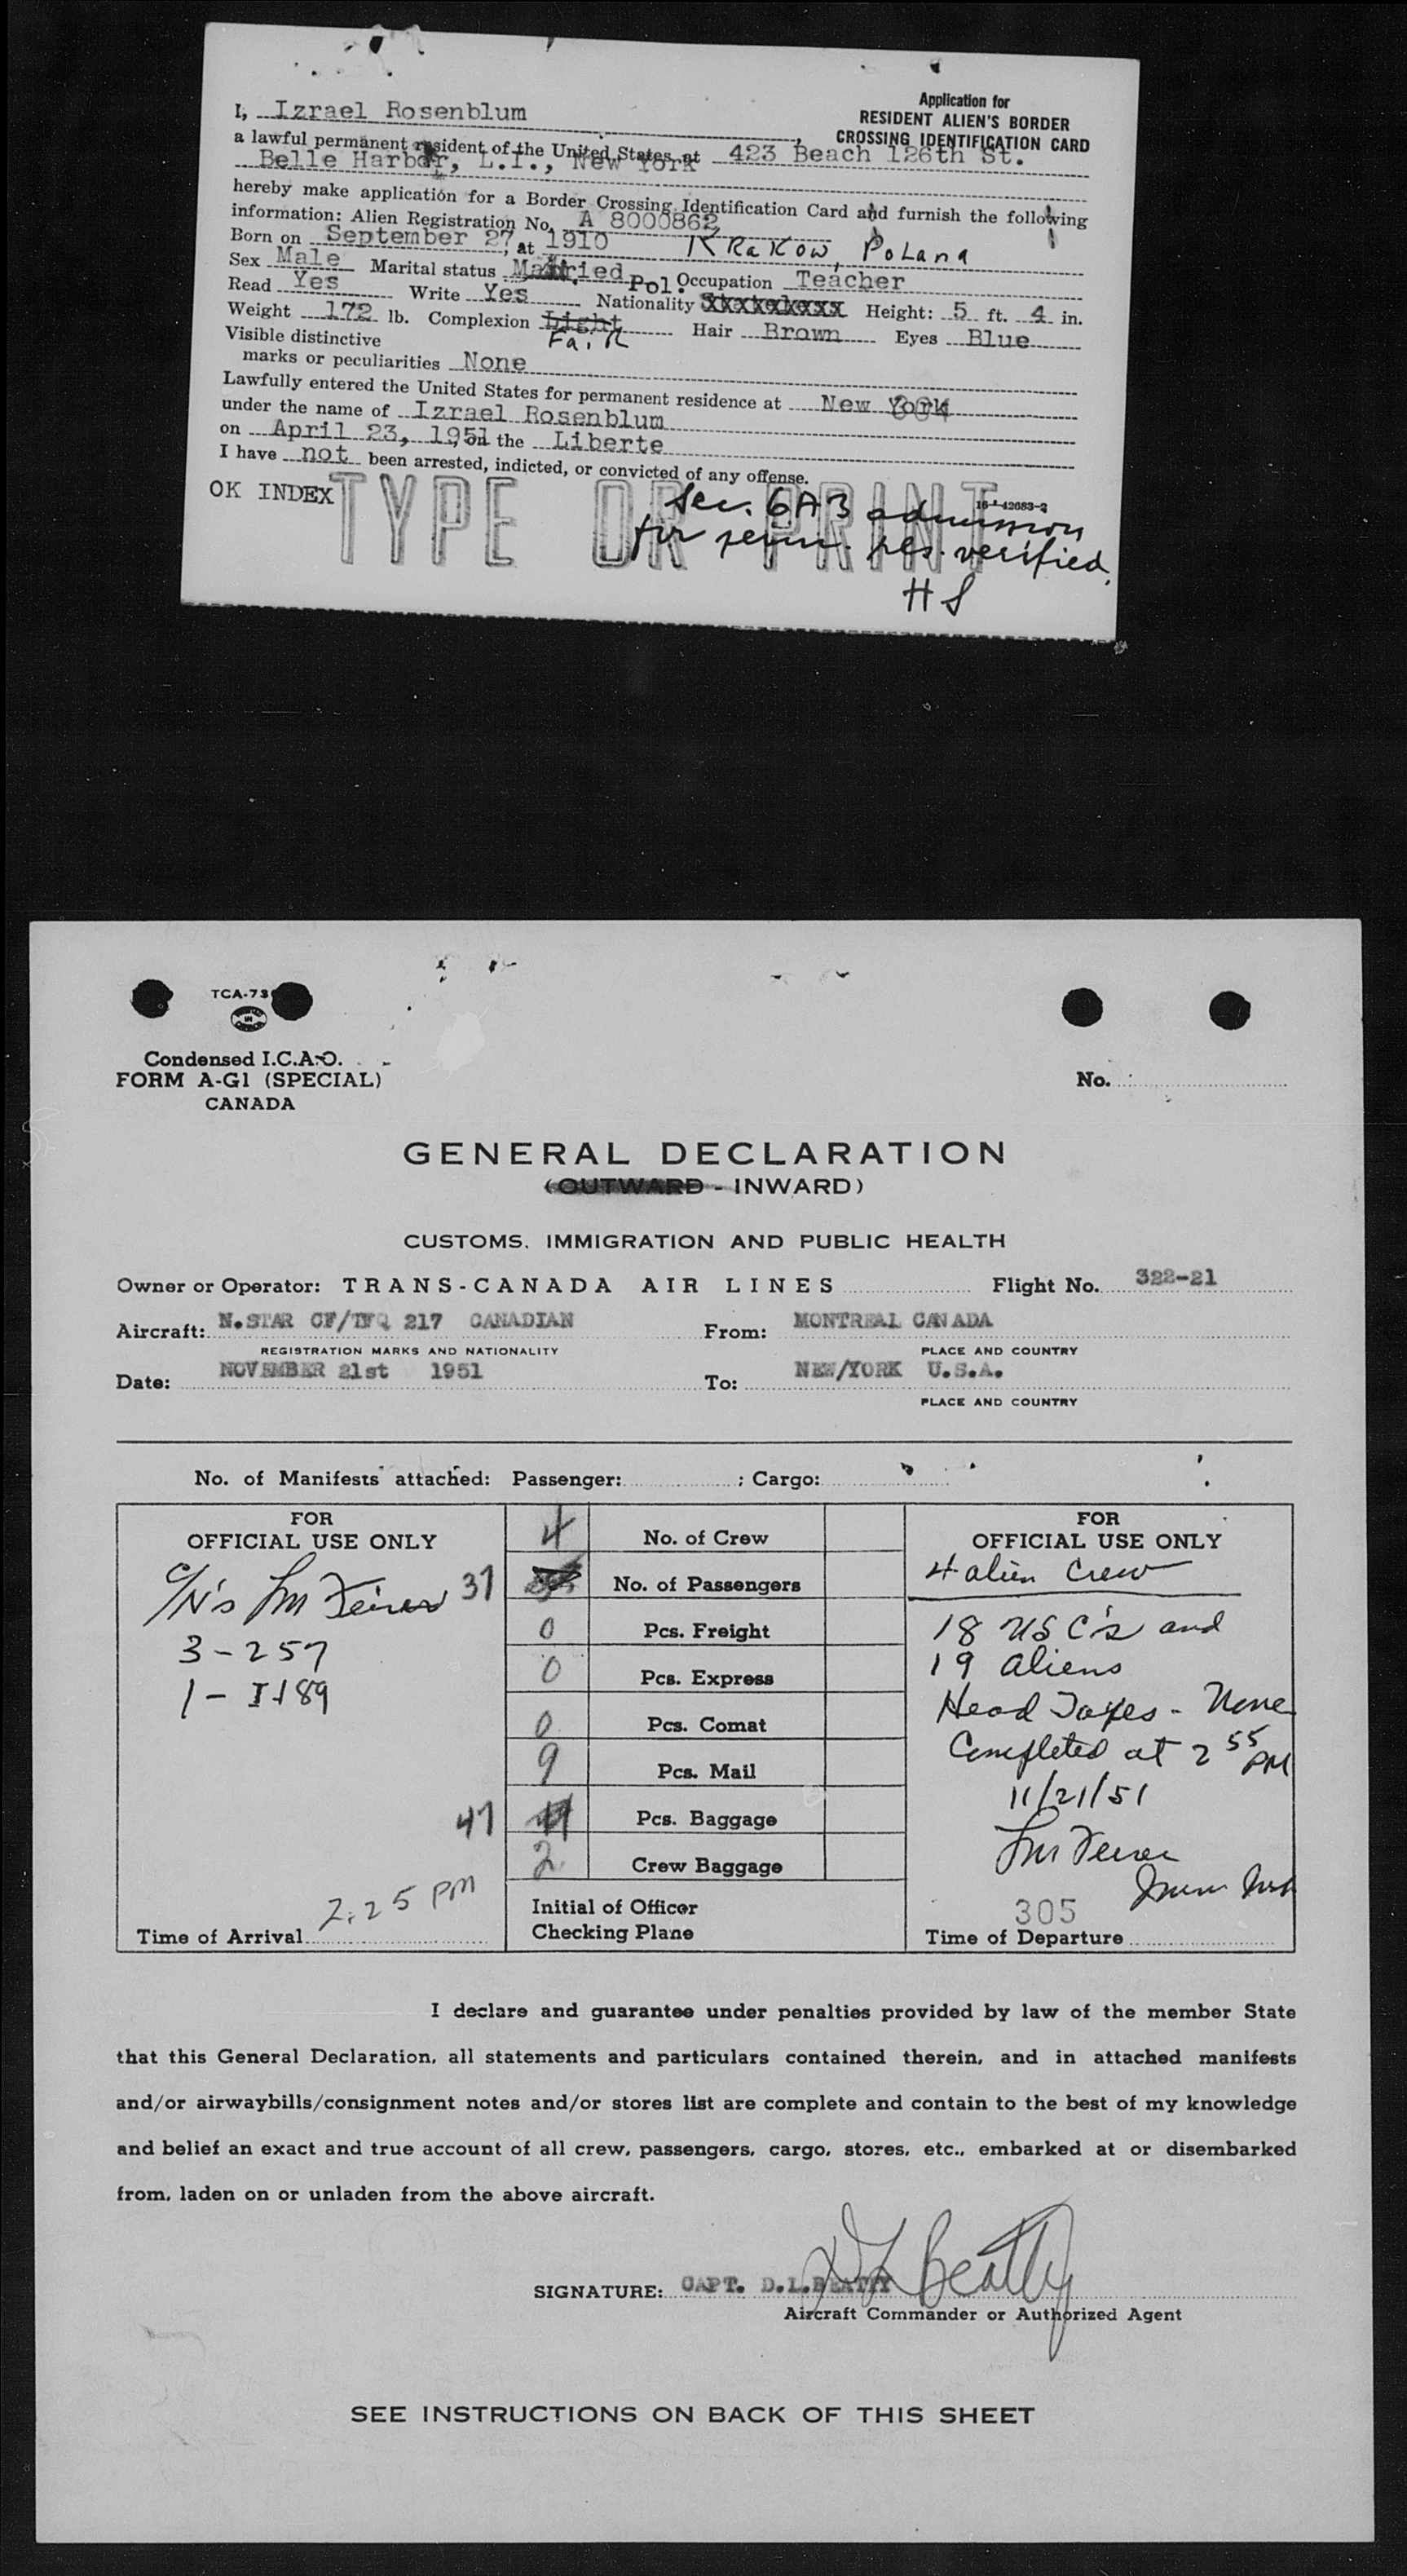 Application for
RESIDENT ALIEN'S BORDER
CROSSING IDENTIFICATION CARD
I, Izrael Rosenblum,
a lawful permanent resident of the United States at 423 Beach 126th St.
Belle Harbor, L.I., New York
hereby make application for a Border Crossing Identification Card and furnish the following
information: Alien Registration No. A 8000862
Born on September 27, at 1910 KRaKow, PoLand
Sex Male Marital status Married Occupation Teacher
Read Yes Write Yes Nationality Pol. Height: 5 ft. 4 in.
Weight 172 lb. Complexion Light Hair Brown Eyes Blue
FaiR
Visible distinctive
marks or peculiarities None
Lawfully entered the United States for permanent residence at New York
under the name of Izrael Rosenblum
on April 23, 1951 on the Liberte
I have not been arrested, indicted, or convicted of any offense.
OK INDEX
TYPE OR PRINT
16-42683-2
Sec. 6A3 admission
for perm. res. verified.
HS
TCA-73
Condensed I.C.A.O.
FORM A-G1 (SPECIAL)
CANADA
No.
GENERAL DECLARATION
(OUTWARD - INWARD)
CUSTOMS, IMMIGRATION AND PUBLIC HEALTH
Owner or Operator: TRANS-CANADA AIR LINES Flight No. 322-21
Aircraft: N.STAR CF/TFQ 217 CANADIAN From: MONTREAL CANADA
REGISTRATION MARKS AND NATIONALITY PLACE AND COUNTRY
Date: NOVEMBER 21st 1951 To: NEW/YORK U.S.A.
PLACE AND COUNTRY
No. of Manifests attached: Passenger: ; Cargo:
FOR
OFFICIAL USE ONLY
3-257
1-I-189
2:25 PM
Time of Arrival
4 No. of Crew
37 No. of Passengers
0 Pcs. Freight
0 Pcs. Express
0 Pcs. Comat
9 Pcs. Mail
47 Pcs. Baggage
2 Crew Baggage
Initial of Officer
Checking Plane
FOR
OFFICIAL USE ONLY
4 alien Crew
18 US C's and
19 aliens
Head Taxes - None
Completed at 2 55 PM
11/21/51
305
Time of Departure
I declare and guarantee under penalties provided by law of the member State
that this General Declaration, all statements and particulars contained therein, and in attached manifests
and/or airwaybills/consignment notes and/or stores list are complete and contain to the best of my knowledge
and belief an exact and true account of all crew, passengers, cargo, stores, etc., embarked at or disembarked
from, laden on or unladen from the above aircraft.
DL Beatty
SIGNATURE: CAPT. D.L.BEATTY
Aircraft Commander or Authorized Agent
SEE INSTRUCTIONS ON BACK OF THIS SHEET